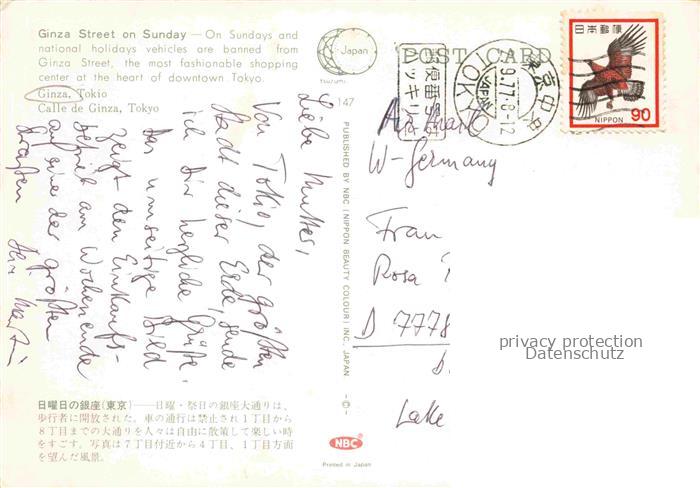 Ginza Street on Sunday — On Sundays and
national holidays vehicles are banned from
Ginza Street, the most fashionable shopping
center at the heart of downtown Tokyo.
Ginza, Tokio
Calle de Ginza, Tokyo
Japan
tsurumi
147
POST CARD
TOKYO
JAPAN
東京中央
9.77.8-12
日本郵便
NIPPON
90
Liebe Mutter,
Von Tokio, der größten
Stadt dieser Erde, sende
ich Dir herzliche Grüße.
Das umseitige Bild
zeigt den Einkaufs-
betrieb am Wochenende
auf eine der größten
Straßen
Dein Martin
PUBLISHED BY NBC (NIPPON BEAUTY COLOUR) INC. JAPAN
Air Mail
W-Germany
Frau
Rosa
D 7778
Lake
privacy protection
Datenschutz
日曜日の銀座(東京)——日曜・祭日の銀座大通りは、
歩行者に開放された。車の通行は禁止され1丁目から
8丁目までの大通りを人々は自由に散策して楽しい時
をすごす。写真は7丁目付近から4丁目、1丁目方面
を望んだ風景。
NBC
Printed in Japan